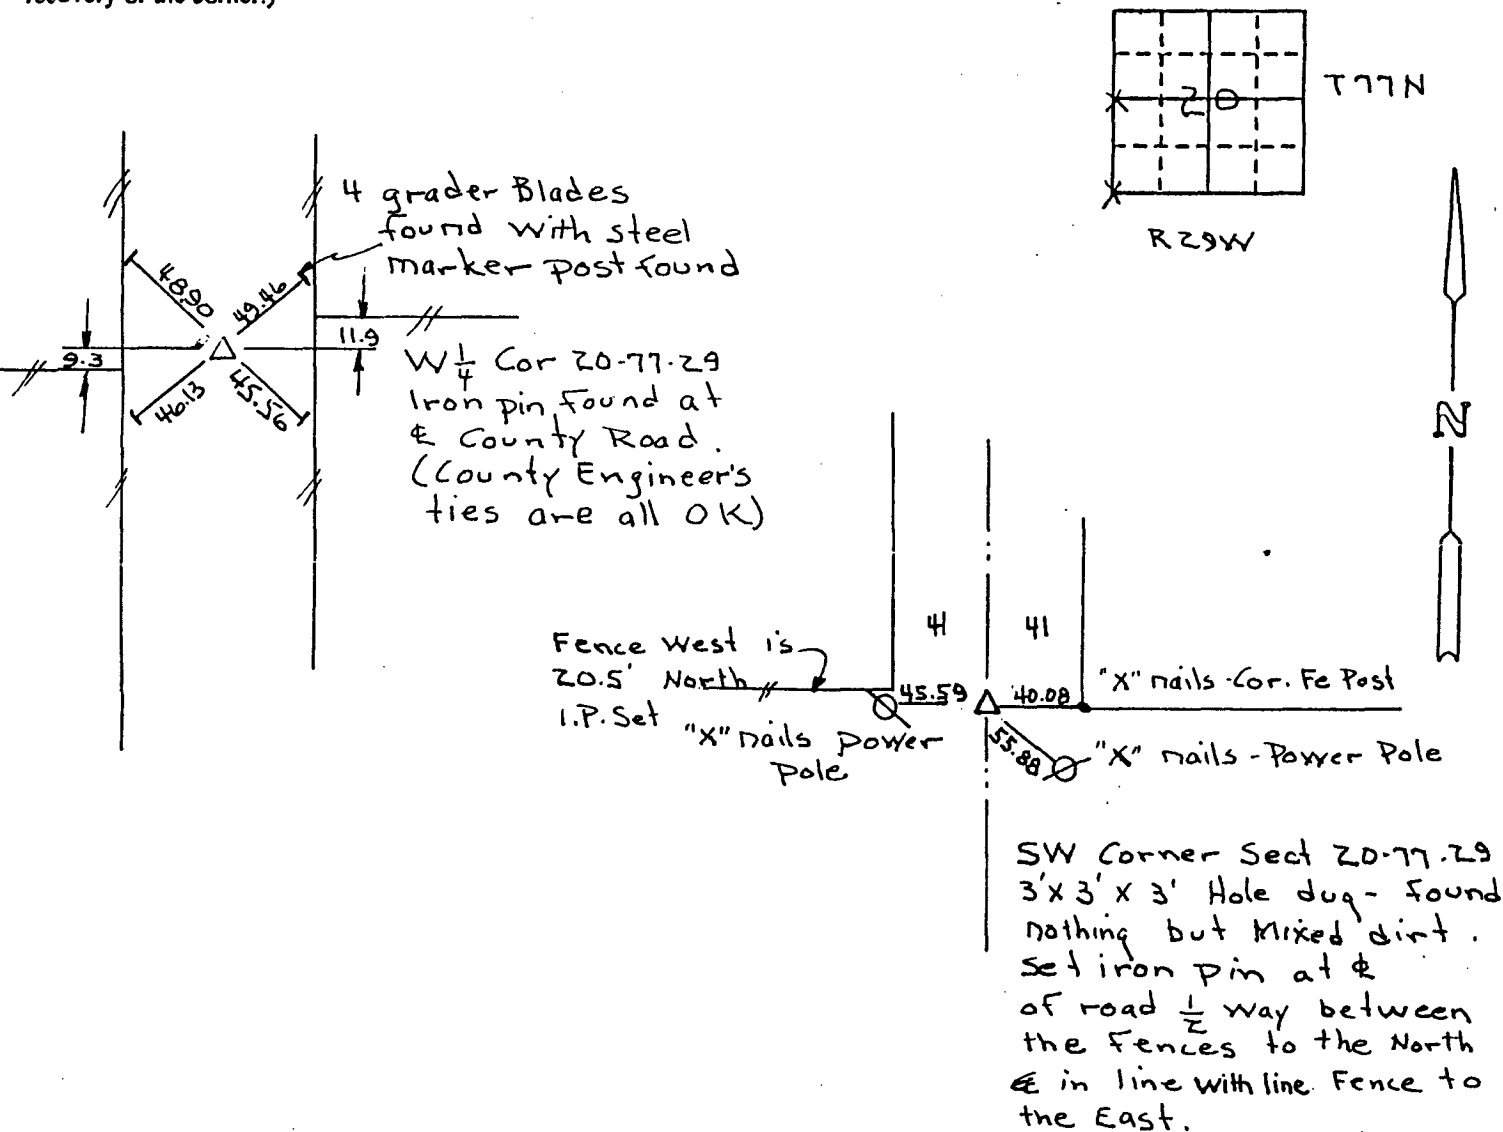 T77N
20
R29W
4 grader Blades
found with steel
marker post found
48.90
49.46
11.9
9.3
46.13
45.56
W 1/4 Cor 20-77-29
Iron pin found at
℄ County Road.
(County Engineer's
ties are all OK)
N
41
41
Fence West is
20.5' North
I.P. Set
45.59
40.08
"X" nails - Cor. Fe Post
"X" nails power
pole
55.88
"X" nails - Power Pole
SW Corner Sect 20-77-29
3' x 3' x 3' Hole dug - found
nothing but Mixed dirt.
Set iron pin at ℄
of road 1/2 way between
the Fences to the North
& in line with line Fence to
the East.